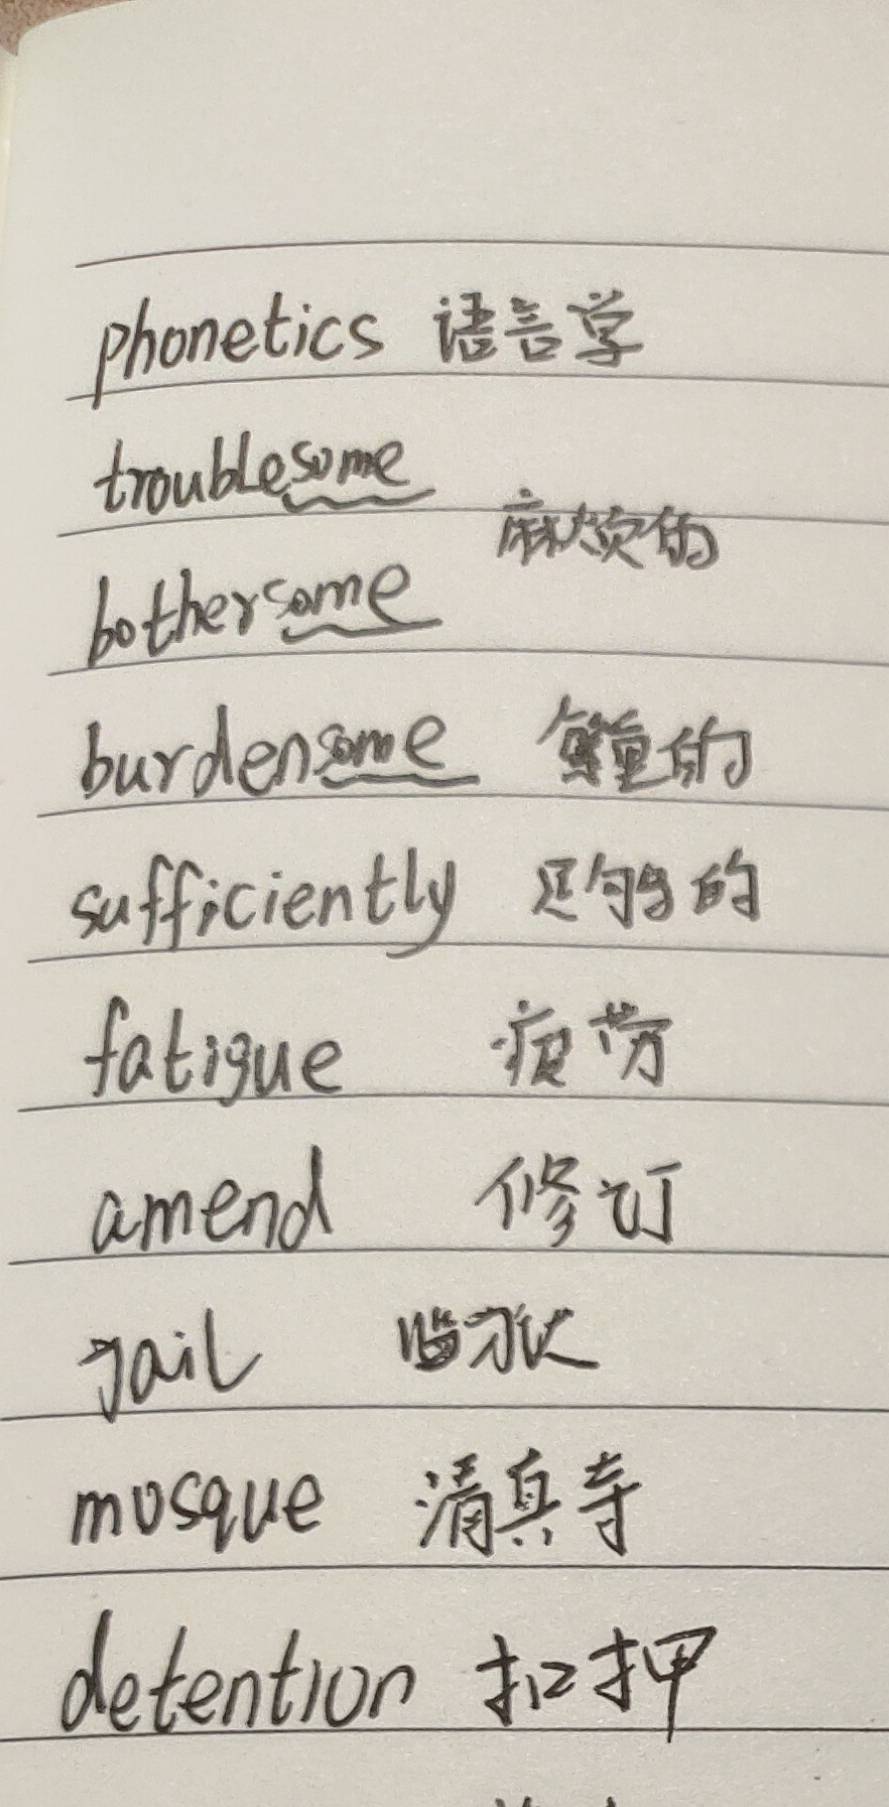 phonetics 语言学
troublesome
麻烦的
bothersome
burdensome 繁重的
sufficiently 足够的
fatigue 疲劳
amend 修订
jail 监狱
mosque 清真寺
detention 扣押